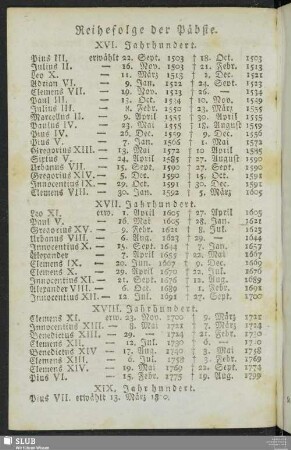 Reihefolge der Päbste.
XVI. Jahrhundert.
Pius III. erwählt 22. Sept. 1503 † 18. Oct. 1503
Julius II. — 16. Nov. 1503 † 21. Febr. 1513
Leo X. — 11. März 1513 † 2. Dec. 1521
Adrian VI. — 9. Jan. 1522 † 24. Sept. 1523
Clemens VII. — 19. Nov. 1523 † 26. — 1534
Paul III. — 13. Oct. 1534 † 10. Nov. 1549
Julius III. — 8. Febr. 1550 † 23. März 1555
Marcellus II. — 9. April 1555 † 30. April 1555
Paulus IV. — 23. Mai 1555 † 18. August 1559
Pius IV. — 26. Dec. 1559 † 9. Dec. 1566
Pius V. — 7. Jan. 1566 † 1. Mai 1572
Gregorius XIII. — 13. Mai 1572 † 10 April 1585
Sixtus V. — 24. April 1585 † 27. August 1590
Urbanus VII. — 15. Sept. 1590 † 27. Sept. 1590
Gregorius XIV. — 5. Dec. 1590 † 15. Oct. 1591
Innocentius IX. — 29. Oct. 1591 † 30. Dec. 1591
Clemens VIII. — 30. Jan. 1592 † 5. März 1605
XVII. Jahrhundert.
Leo XI. erw. 1. April 1605 † 27. April 1605
Paul V. — 16. Mai 1605 † 28. Jan. 1621
Gregorius XV. — 9. Febr. 1621 † 8. Jul. 1623
Urbanus VIII. — 6. Aug. 1623 † 29. — 1644
Innocentius X. — 15. Sept. 1644 † 7. Jan. 1655
Alexander — 7. April 1655 † 22. Mai 1667
Clemens IX. — 20. Jun. 1667 † 9. Dec. 1669
Clemens X. — 29. April 1670 † 22. Jul. 1676
Innocentius XI. — 21. Sept. 1676 † 12. Aug. 1689
Alexander VIII. — 6. Oct. 1689 † 1. Febr. 1691
Innocentius XII. — 12. Jul. 1691 † 27. Sept. 1700
XVIII. Jahrhundert.
Clemens XI. erw. 23. Nov. 1700 † 9. März 1721
Innocentius XIII. — 8. Mai 1721 † 7. März 1724
Benedictus XIII. — 29. — 1724 † 21. Febr. 1730
Clemens XII. — 12. Jul. 1730 † 6. — 1740
Benedictus XIV — 17. Aug. 1740 † 3. Mai 1758
Clemens XIII. — 6. Jul. 1758 † 3. Febr. 1769
Clemens XIV. — 19. Mai 1769 † 22. Sept. 1774
Pius VI. — 15. Febr. 1775 † 19. Aug. 1799
XIX. Jahrhundert.
Pius VII. erwählt 13. März
SLUB
Wir führen Wissen.